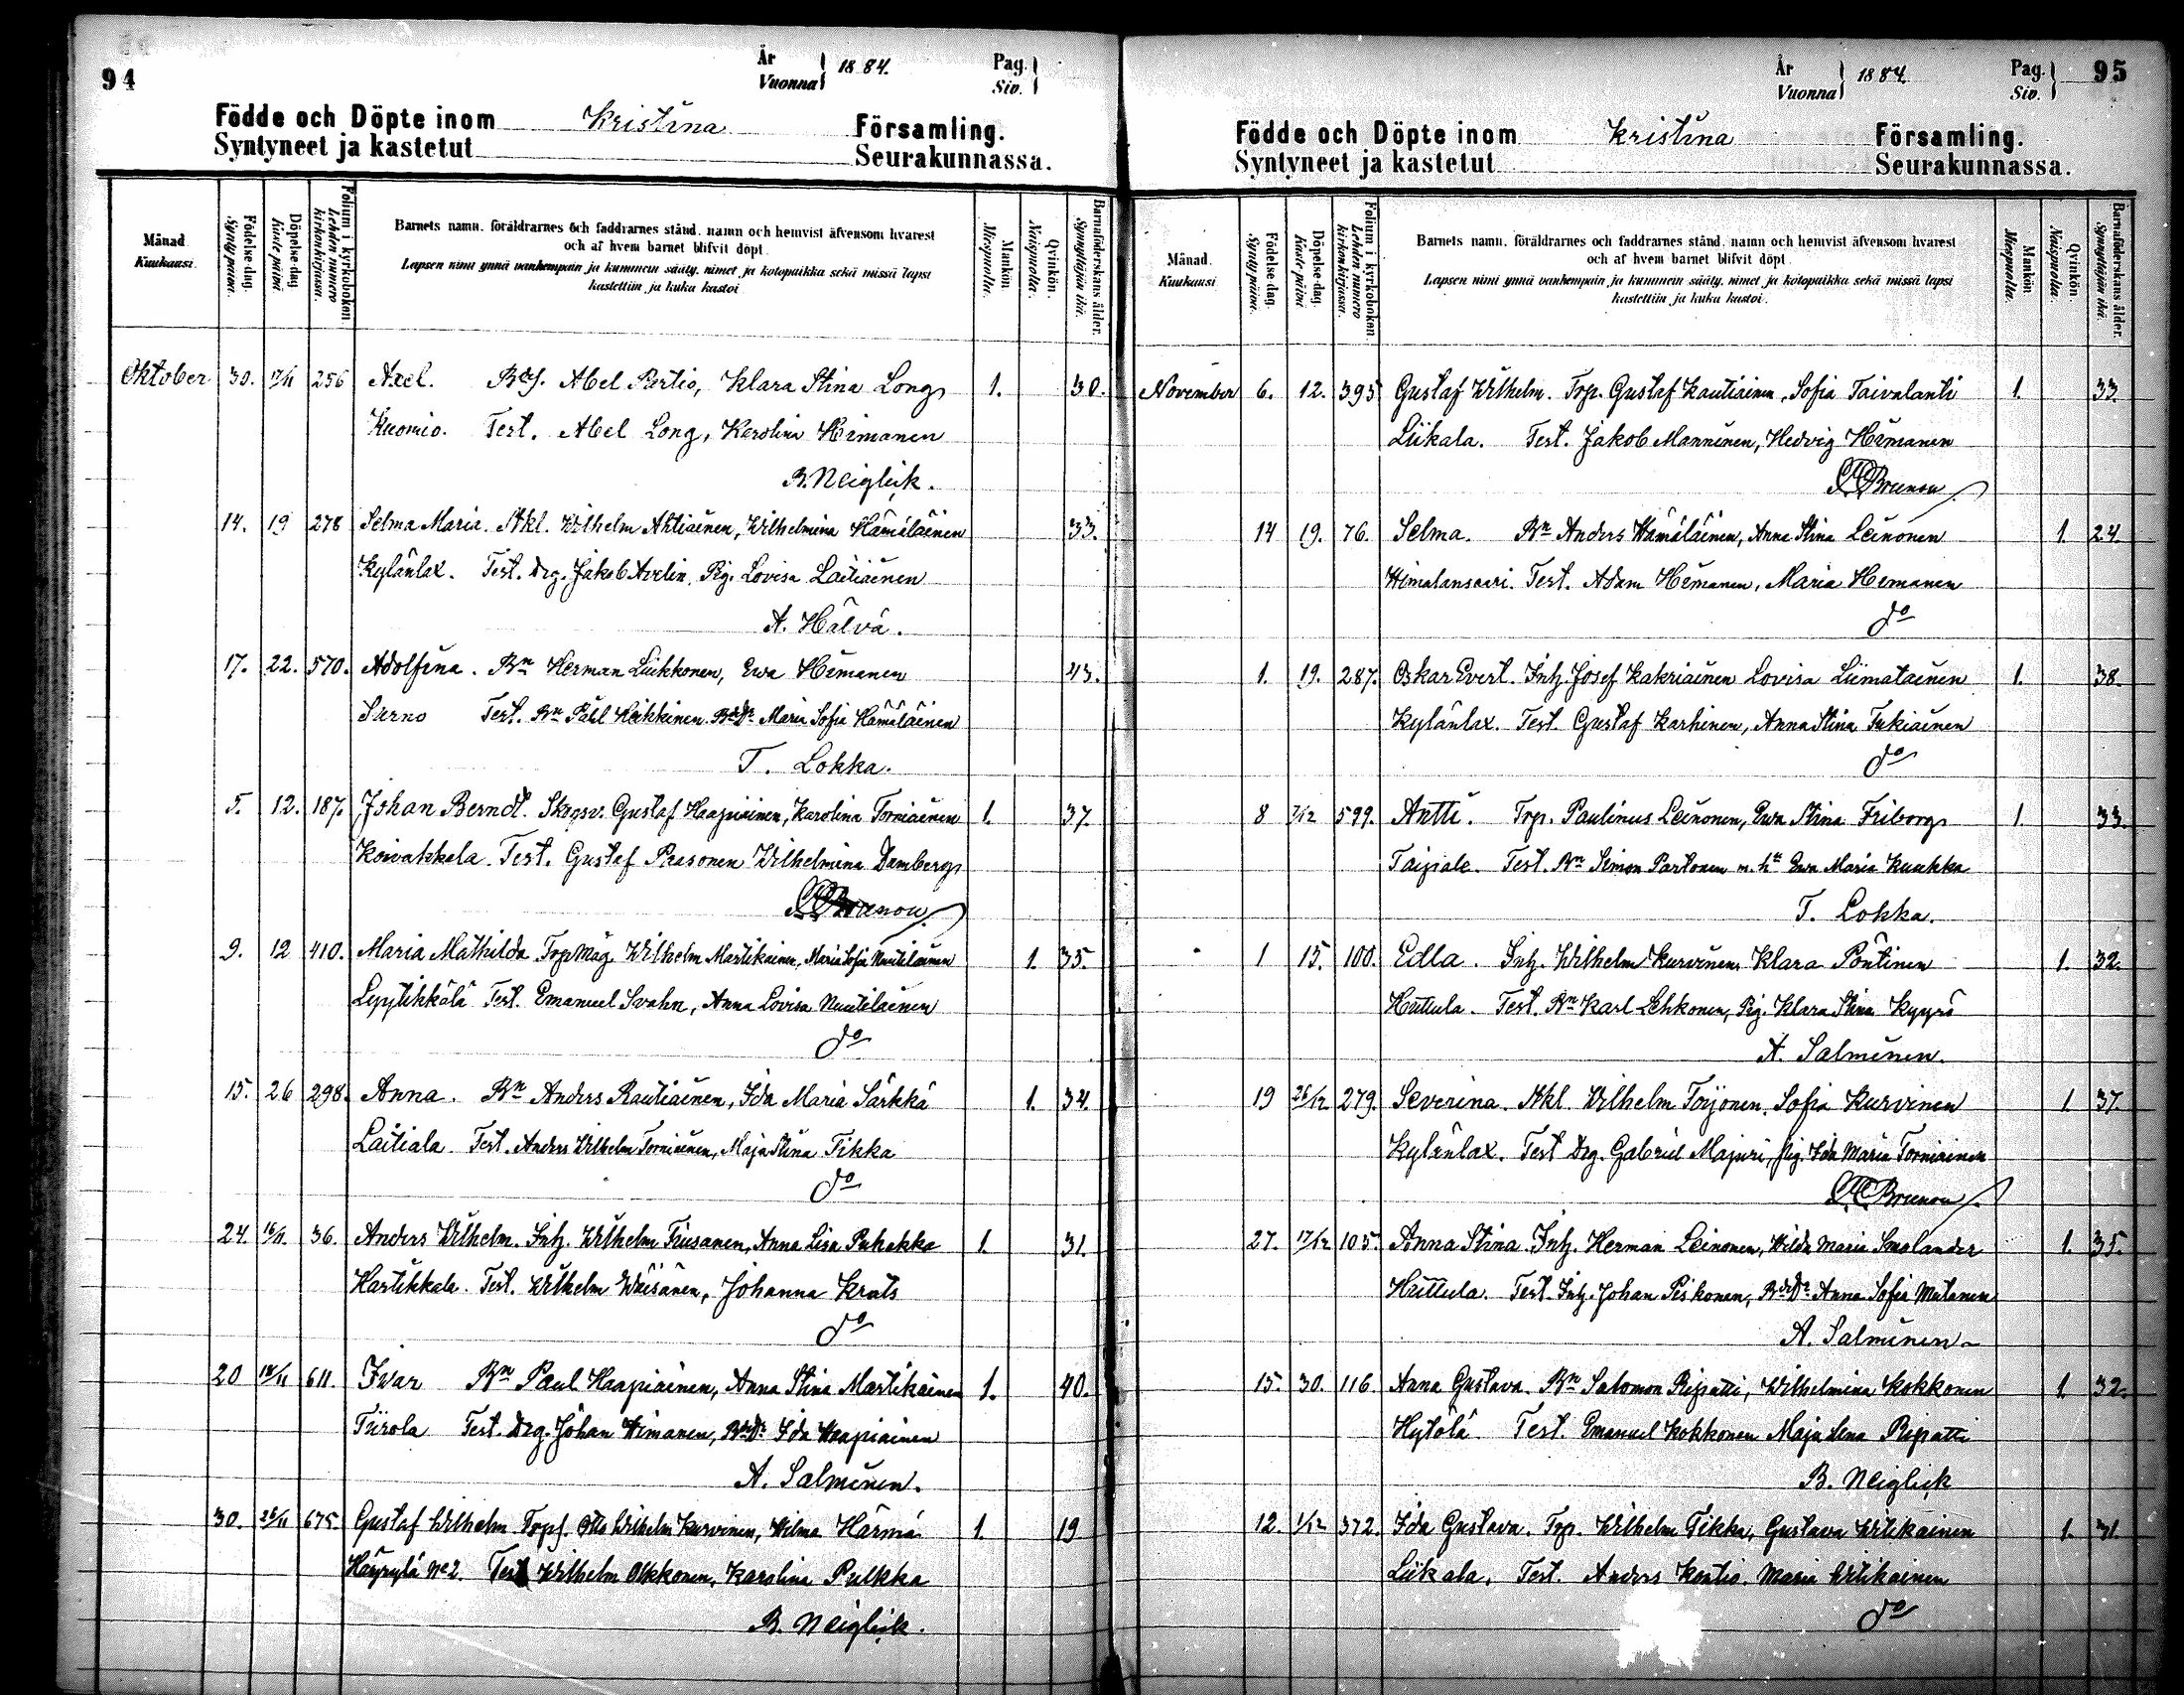 94
År
Vuonna } 1884.
Pag.
Siv.
Födde och Döpte inom Kristina Församling.
Syntyneet ja kastetut Seurakunnassa.
Månad. Kuukausi.
Födelse-dag. Synty päivä.
Döpelse-dag. Kaste päivä.
Folium i kyrkoboken. Lehden numero kirkonkirjassa.
Barnets namn, föräldrarnes och faddrarnes stånd, namn och hemvist äfvensom hvarest
och af hvem barnet blifvit döpt.
Lapsen nimi ynnä vanhempain ja kummein sääty, nimet ja kotopaikka sekä missä lapsi
kastettiin ja kuka kastoi.
Mankön. Miespuolia.
Qvinkön. Naispuolia.
Barnaföderskans ålder. Synnyttäjän ikä.
Oktober 30. 17/11 256 Axel. Bdsf. Abel Partio, Klara Stina Long 1. 30.
Kuomio. Test. Abel Long, Karolina Himanen
B. Neiglick.
14. 19 278 Selma Maria. Stkl. Wilhelm Ahtiainen, Wilhelmina Hämäläinen 33.
Kylänlax. Test. Drg. Jakob Avelin, Pig. Lovisa Laitiainen
A. Hälvä.
17. 22. 570. Adolfina. Bn Herman Liukkonen, Ewa Himanen 43.
Surno Test. Bn Pähl Heikkinen. Bdedr Maria Sofia Hämäläinen
T. Lokka.
5. 12. 187. Johan Berndt. Skogsv. Gustaf Haapiainen, Karolina Torniainen 1. 37.
Koivakkala. Test. Gustaf Paasonen Wilhelmina Damberg
Brunou
9. 12 410. Maria Mathilda Torpmåg Wilhelm Martikainen, Maria Sofia Nuutilainen 1. 35.
Lyytikkälä Test. Emanuel Svahn, Anna Lovisa Nuutilainen
do
15. 26 298. Anna. Bn Anders Rautiainen, Ida Maria Särkkä 1. 34.
Laitiala. Test. Anders Wilhelm Torniainen, Maja Stina Tikka
do
24. 16/11. 36. Anders Wilhelm. Inh. Wilhelm Tiusanen, Anna Lisa Puhakka 1. 31.
Hartikkala. Test. Wilhelm Wäisänen, Johanna Krats
do
20 18/11 611. Ivar Bn Paul Haapiainen, Anna Stina Martikainen 1. 40.
Tiirola Test. Drg. Johan Himanen, Bdedr Ida Haapiainen
A. Salminen.
30. 25/11 675. Gustaf Wilhelm Torpf. Otto Wilhelm Kurvinen, Hilma Härmä 1. 19
Häyrylä No 2. Test Wilhelm Olkkonen, Karolina Pulkka
B. Neiglick.
År
Vuonna } 1884.
Pag.
Siv.
95
Födde och Döpte inom Kristina Församling.
Syntyneet ja kastetut Seurakunnassa.
Månad. Kuukausi
Födelse-dag. Synty päivä.
Döpelse-dag. Kaste päivä
Folium i kyrkoboken. Lehden numero kirkonkirjassa.
Barnets namn, föräldrarnes och faddrarnes stånd, namn och hemvist äfvensom hvarest
och af hvem barnet blifvit döpt.
Lapsen nimi ynnä vanhempain ja kummein sääty, nimet ja kotopaikka sekä missä lapsi
kastettiin ja kuka kastoi.
Mankön Miespuolia.
Qvinkön. Naispuolia.
Barnaföderskans ålder. Synnyttäjän ikä.
November 6. 12. 395 Gustaf Wilhelm. Torp. Gustaf Kautiainen, Sofia Taivalanti 1. 33.
Liikala. Test. Jakob Manninen, Hedvig Himanen
Brunou
14 19. 76. Selma. Bn Anders Hämäläinen, Anna Stina Leinonen 1. 24.
Himalansaari. Test. Adam Himanen, Maria Himanen
do
1. 19. 287. Oskar Evert. Inh. Josef Kakriainen Lovisa Liimatainen 1. 38.
Kylänlax. Test. Gustaf Karhinen, Anna Stina Tukiainen
do
8 7/12 599. Antti. Torp. Paulinus Leinonen, Ewa Stina Friborg 1. 33.
Taipale. Test. Bn Simon Partonen m. h. Ewa Maria Kuukka
T. Lokka.
1 15. 100. Edla. Inh. Wilhelm Kurvinen Klara Pöntinen 1. 32.
Huttula. Test. Bn Karl Lehkonen, Pig. Klara Stina Kyyrö
A. Salminen.
19 26/12 279. Severina. Stkl. Wilhelm Töyönen. Sofia Kurvinen 1. 37.
Kylänlax. Test Drg. Gabriel Majuri, pig. Ida Maria Torniainen
Brunou
27. 17/12 105. Anna Stina. Inh. Herman Leinonen, Hilda Maria Smolander 1. 35.
Huttula. Test. Inh. Johan Piskonen, Bdedr Anna Sofia Mutanen
A. Salminen
15. 30. 116. Anna Gustava. Bn Salomon Ripatti, Wilhelmina Kokkonen 1. 32.
Hytölä. Test. Emanuel Kokkonen Maja Lena Ripatti
B. Neiglick
12. 1/12 372. Ida Gustava. Torp. Wilhelm Tikka, Gustava Witikainen 1. 31.
Liikala. Test. Anders Kontio. Maria Witikainen
do